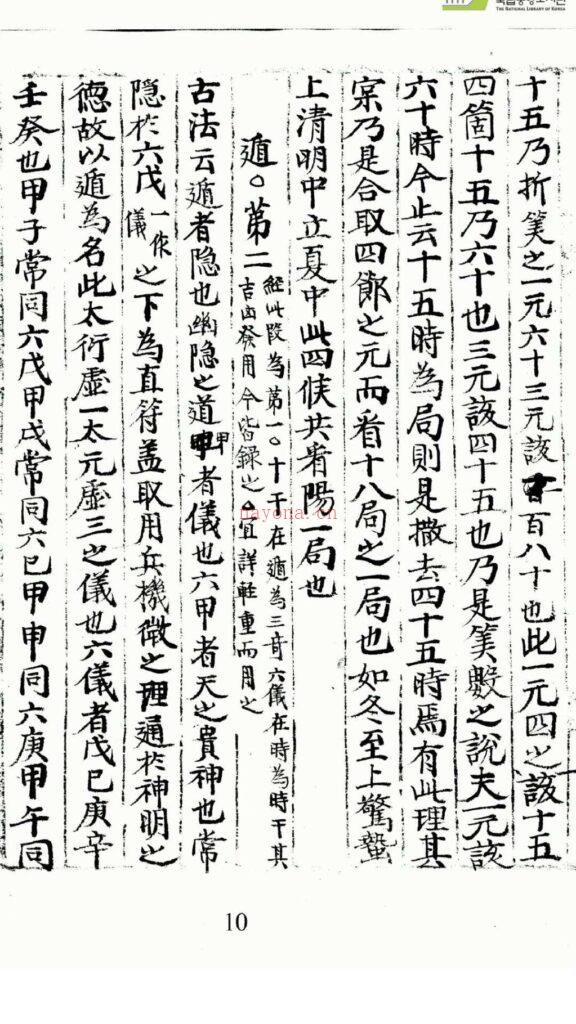 국립중앙도서관
THE NATIONAL LIBRARY OF KOREA
十五乃折筭之一元六十三元該百八十也此一元四之該十五
四箇十五乃六十也三元該四十五也乃是筭數之說夫一元該
六十時今止云十五時為局則是撒去四十五時焉有此理其
宲乃是合取四節之元而看十八局之一局也如冬至上驚蟄
上清明中立夏中此四候共看陽一局也
遁○第二
經此段為第一○十干在遁為三奇六儀在時為時干其
吉凶發用今皆録之宜詳輕重而用之
古法云遁者隐也幽隐之道甲者儀也六甲者天之貴神也常
隐於六戊一作儀之下為直符盖取用兵機微之理通於神明之
德故以遁為名此太衍虚一太元虚三之儀也六儀者戊巳庚辛
壬癸也甲子常同六戊甲戌常同六巳甲申同六庚甲午同
nayona.cn
10